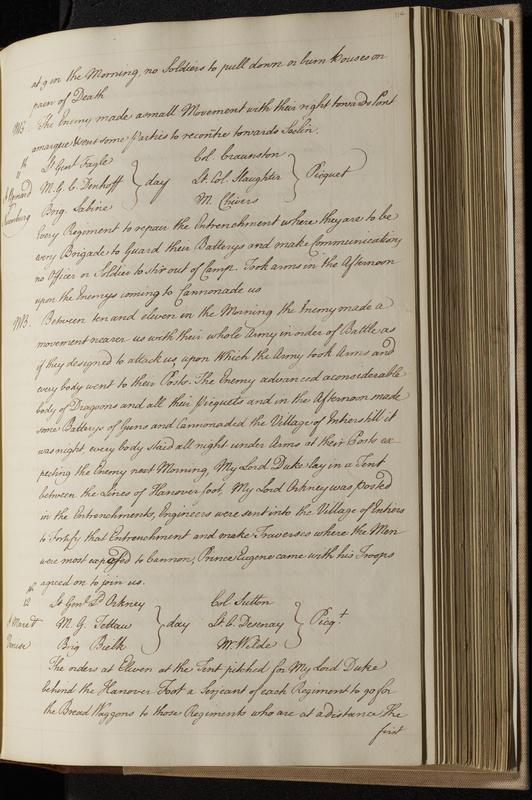 at 9 in the Morning, no Soldiers to pull down or burn houses on
pain of Death
NB The Enemy made a small Movement with their right towards Pont
amarque & sent some Parties to recoitre towards Seclin.
11th Lt Genl Fagle Col. Craunston
M. G. C. Denhoff day Lt. Col. Slaughter Picquet
Brig. Sabine M. Chivers
Every Regiment to repair the Entrenchment where they are to be
every Brigade to Guard their Batterys and make Communication,
no Officer or Soldier to Stir out of Camp. Took arms in the Afternoon
upon the Enemys coming to Cannonade us
NB. Between ten and eleven in the Morning the Enemy made a
movement nearer us with their whole Army in order of Battle as
if they designed to attack us, upon Which the Army took Arms and
every body went to their Posts. The Enemy advanced a considerable
body of Dragoons and all their Picquets and in the Afternoon made
some Batterys of Guns and Cannonaded the Village of Entiers till it
was night, every body staid all night under Arms at their Posts ex-
pecting the Enemy next Morning, My Lord Duke lay in a Tent
between the Lines of Hanover foot, My Lord Orkney was posted
in the Entrenchments, Engineers were sent into the Village of Entiers
to Fortify that Entrenchment and make Traverses where the Men
were most exposed to Cannon, Prince Eugene came with his Troops
agreed on to join us.
12 Lt Genl Ld Orkney Col Sutton
M. G. Tettau day Lt. C. Desenay Picqt
Brig Bielk M. Wilde
The orders at Elleven at the Tent pitched for My Lord Duke
behind the Hanover Foot a Serjeant of each Regiment to go for
the Bread Waggons to those Regiments who are at a distance, The
first